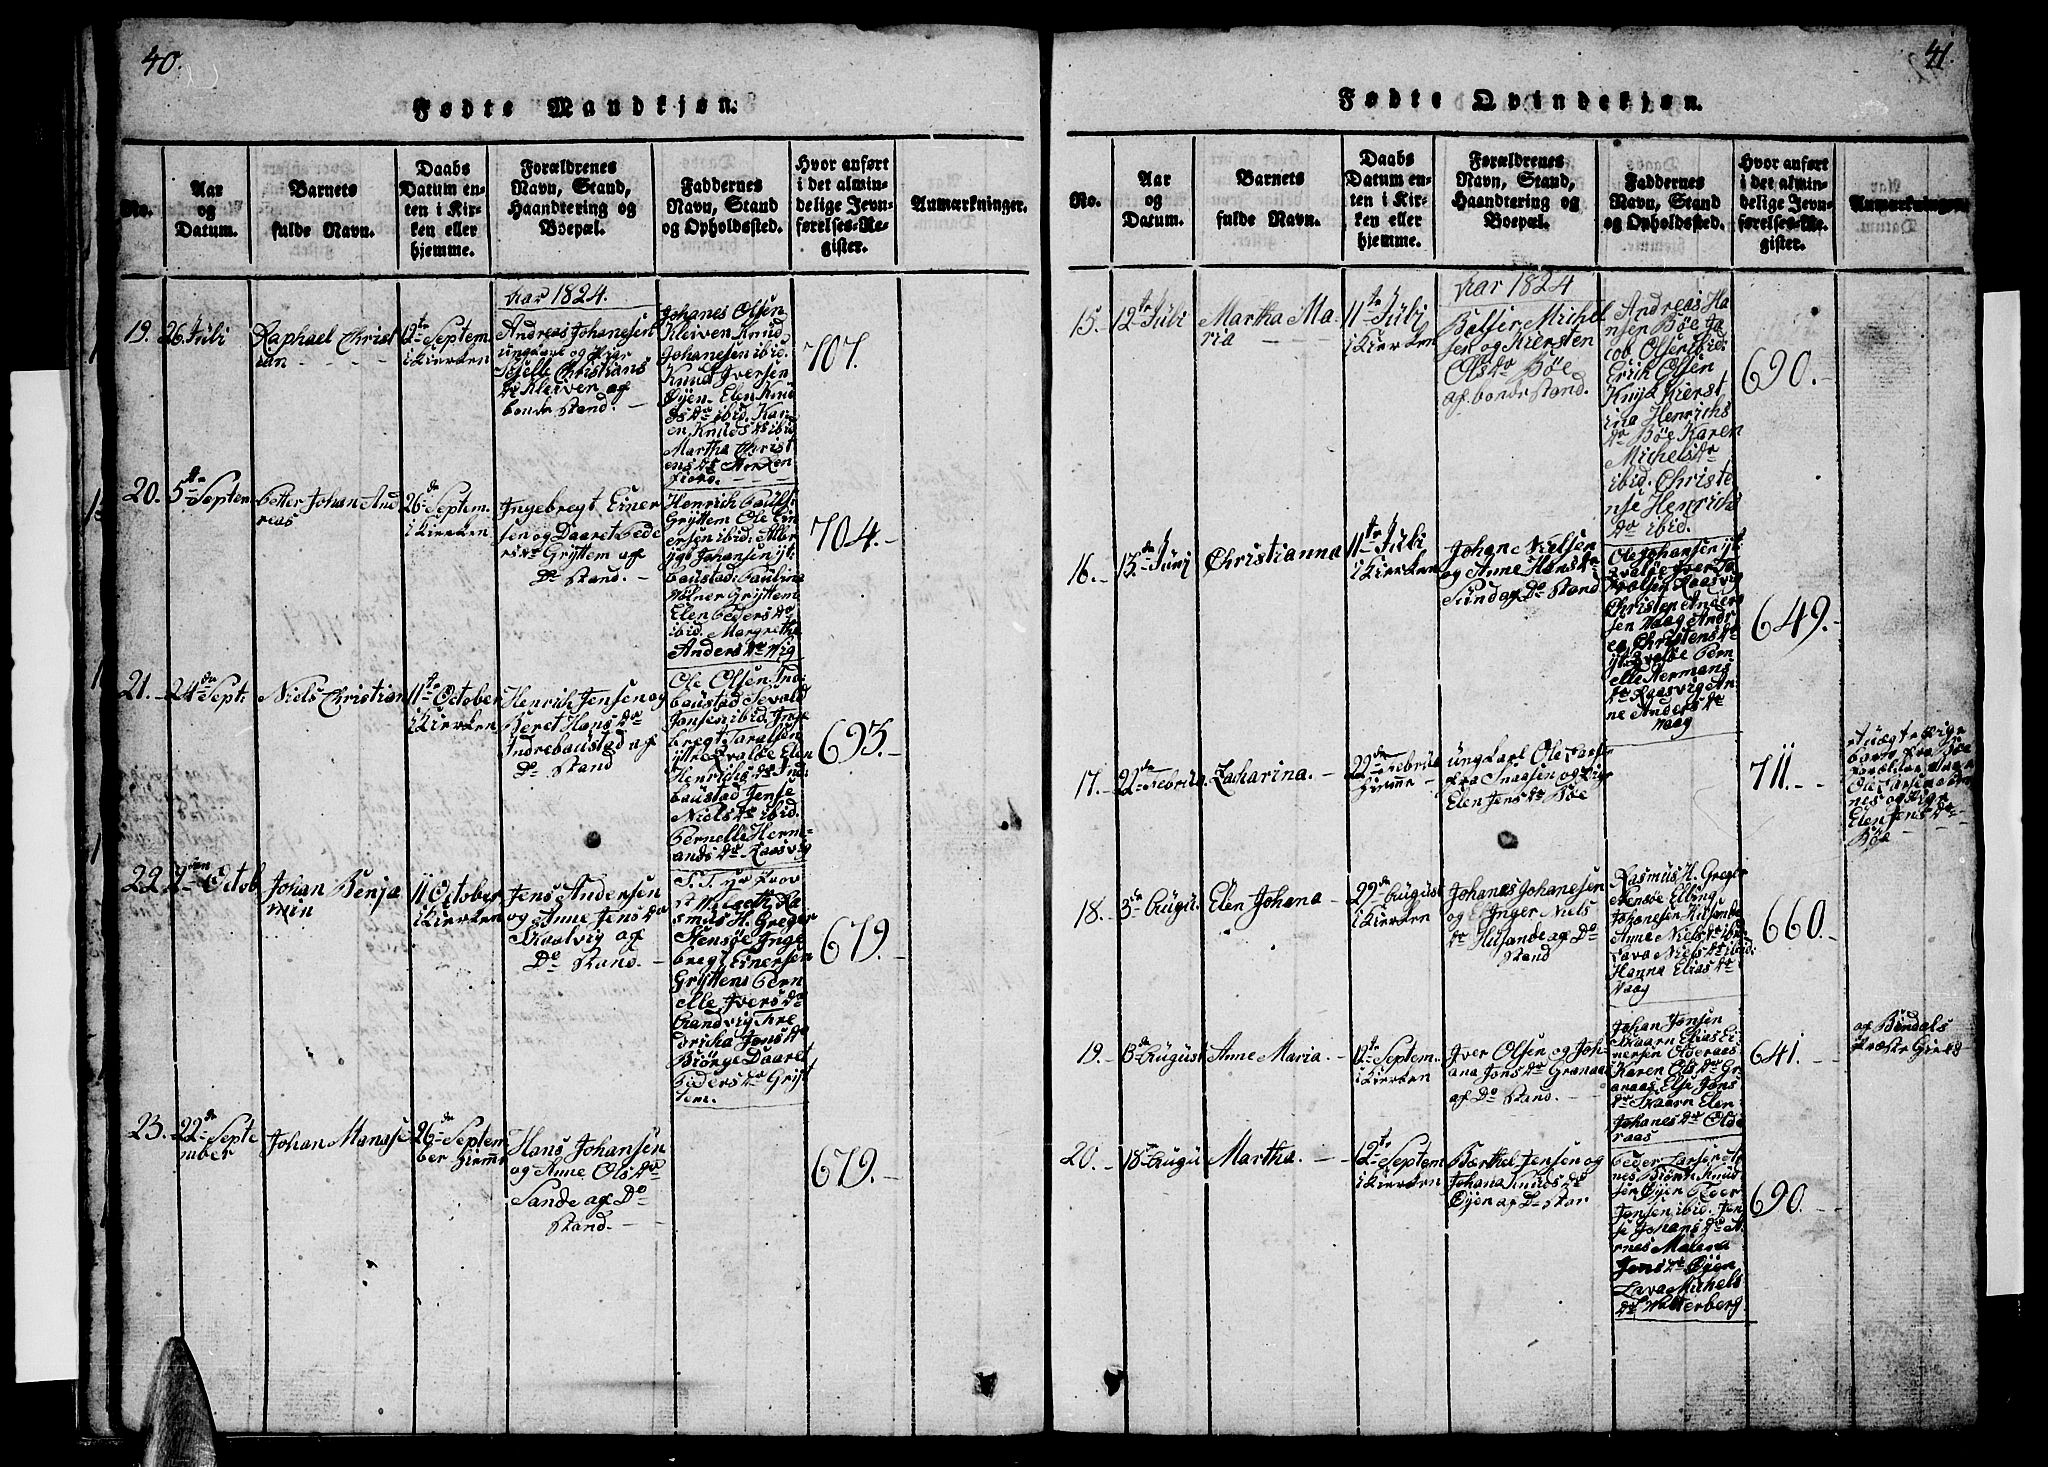 40.
Fødte Mandkjøn.
No.
Aar
og
Datum.
Barnets
fulde Navn.
Daabs
Datum en-
ten i Kir-
ken eller
hjemme.
Forældrenes
Navn, Stand,
Haandtering og
Boepæl.
Faddernes
Navn, Stand
og Opholdssted.
Hvor anført
i det almin-
delige Jevn-
førelses-Re-
gister.
Anmærkninger.
Aar 1824.
19. 26 Juli
Raphael Christ
ian
12te Septem
i Kierken
Andreas Johanesen
ungkarl og Pige
Christians
dr Kleiven af
bonde Stand.
Johanes Olsen
Kleiven Knud
Johanesen ibid.
Knud Iversen
Øyen Elen Knu
ds dr ibid. Kar
en Knuds dr ibid
Martha Christ
ens dr
fiord.
707.
20. 5te Septem
Petter Johan And
reas
26de Septem.
i Kierken
Ingebregt Einer
sen og Daaret Pede
rs dr Gryttem af
Do Stand.
Henrich Pauls
Gryttem Ole Ein
ersen ibid. Albr
igt Johansen yt.
baustad. Paulina
Grÿttem
Elen Peders dr
ibid. Margrethe
Anders dr Vig
704.
21. 24de Sept.
Niels Christian
11te October
i Kierken
Henrich Jensen og
Beret Hans dr
Indrebaustad af
Do Stand
Ole Olsen Ind.
baustad Sevald
Jonsen ibid. Inge
bregt Taralsen
yttre Qvaløe Elen
Henrichs dr Ind.
baustad Jense
Niels dr ibid.
Pernelle Herm-
ands dr Raasvig
693.
22. 2den Octob
Johan Benja
min
11 October
i Kierken
Jens Andersen
og Anne Jens dr
Skaalvig af
Do Stand.
Ra
smus H. Greger
Stensøe Inge
bregt Einersen
Gryttens Pern
elle Ivers dr
Sandvig Fre
dricha Jens dr
Biørge Daaret
Peders dr Gryt
tem.
679.
23. 22de Septe
mber
Johan Manase
26de Septem
ber hiemme
Hans Johansen
og Anne Ols dr
Sande af Do
Stand.
679.
41.
Fødte Qvindekjøn.
No.
Aar
og
Datum.
Barnets
fulde Navn.
Daabs
Datum en-
ten i Kir-
ken eller
hjemme.
Forældrenes
Navn, Stand,
Haandtering og
Boepæl.
Faddernes
Navn, Stand
og Opholdssted.
Hvor anført
i det almin-
delige Jevn-
førelses-Re-
gister.
Anmærkninger.
Aar 1824
15. 12te Juli
Martha Ma
ria
11te Juli
i Kierken
Balser Michel
sen og Kiersten
Ols dr Bøe
af bonde Stand.
Andreas Ha
nsen Bøe Ja
cob Olsen ibid.
Erik Olsen
Kierst
ina Henrichs
dr Bøe Karen
Michels dr
ibid. Christe
nse Henrichs
dr ibid.
690.
16. 13de Junj
Christianna
11te Juli
i Kierken
Johan Nielsen
og Anne Hans dr
Sund af Do Stand
Ole Johansen yt.
Qvaløe Iver Ta
ralsen Raasvig
Christen Anders
sen Vaag Andr
ea Christens dr
yt. Qvaløe Pern
elle Hermans
dr Raasvig An-
ne Anders dr
Vaag
649.
17. 22de Februa.
Zacharina.
29de Februa
hiemme
ungkarl Ole Lars.
fra Snaasen og Pige
Elen Jens dr Bøe
711.
et uægte Pige
barn fra Bøe
forældre
Ole Larsen
nes og Pige
Elen Jens dr
Bøe
18. 3de Augu.
Elen Johana
29de August
i Kierken
Johanes Johanesen
og Inger Niels
dr Husande af Do
Stand
Rasmus H. Greger
Stensøe
Johanesen Husande
Anne Niels dr ibid
Lava Niels dr ibid.
Hanna Elias dr
Vaag
660.
19. 13de August
Anne Maria.
12te Septem.
i Kierken
Iver Olsen og Joh-
ana Jons dr Granaas
af Do Stand.
Johan Jonsen
Skaarn Elias Ei
nersen Olderaas
Karen Ols dr Gr
anaas Else Jons
dr Skaarn Elen
Johanes dr Olde
raas
641.
af Bindals
Præste Gield
20. 15de Augu
Martha.
12te Septem
i Kierken
Barthel Jensen og
Johana Knuds dr
Øyen af Do Stan
Peder Larsen
nes Knud
sen Øyen Peder
Jensen ibid. Jen
se Johans dr
rnes Malena
Jens dr Øyen
Lava Michels
dr Walterberg
690.